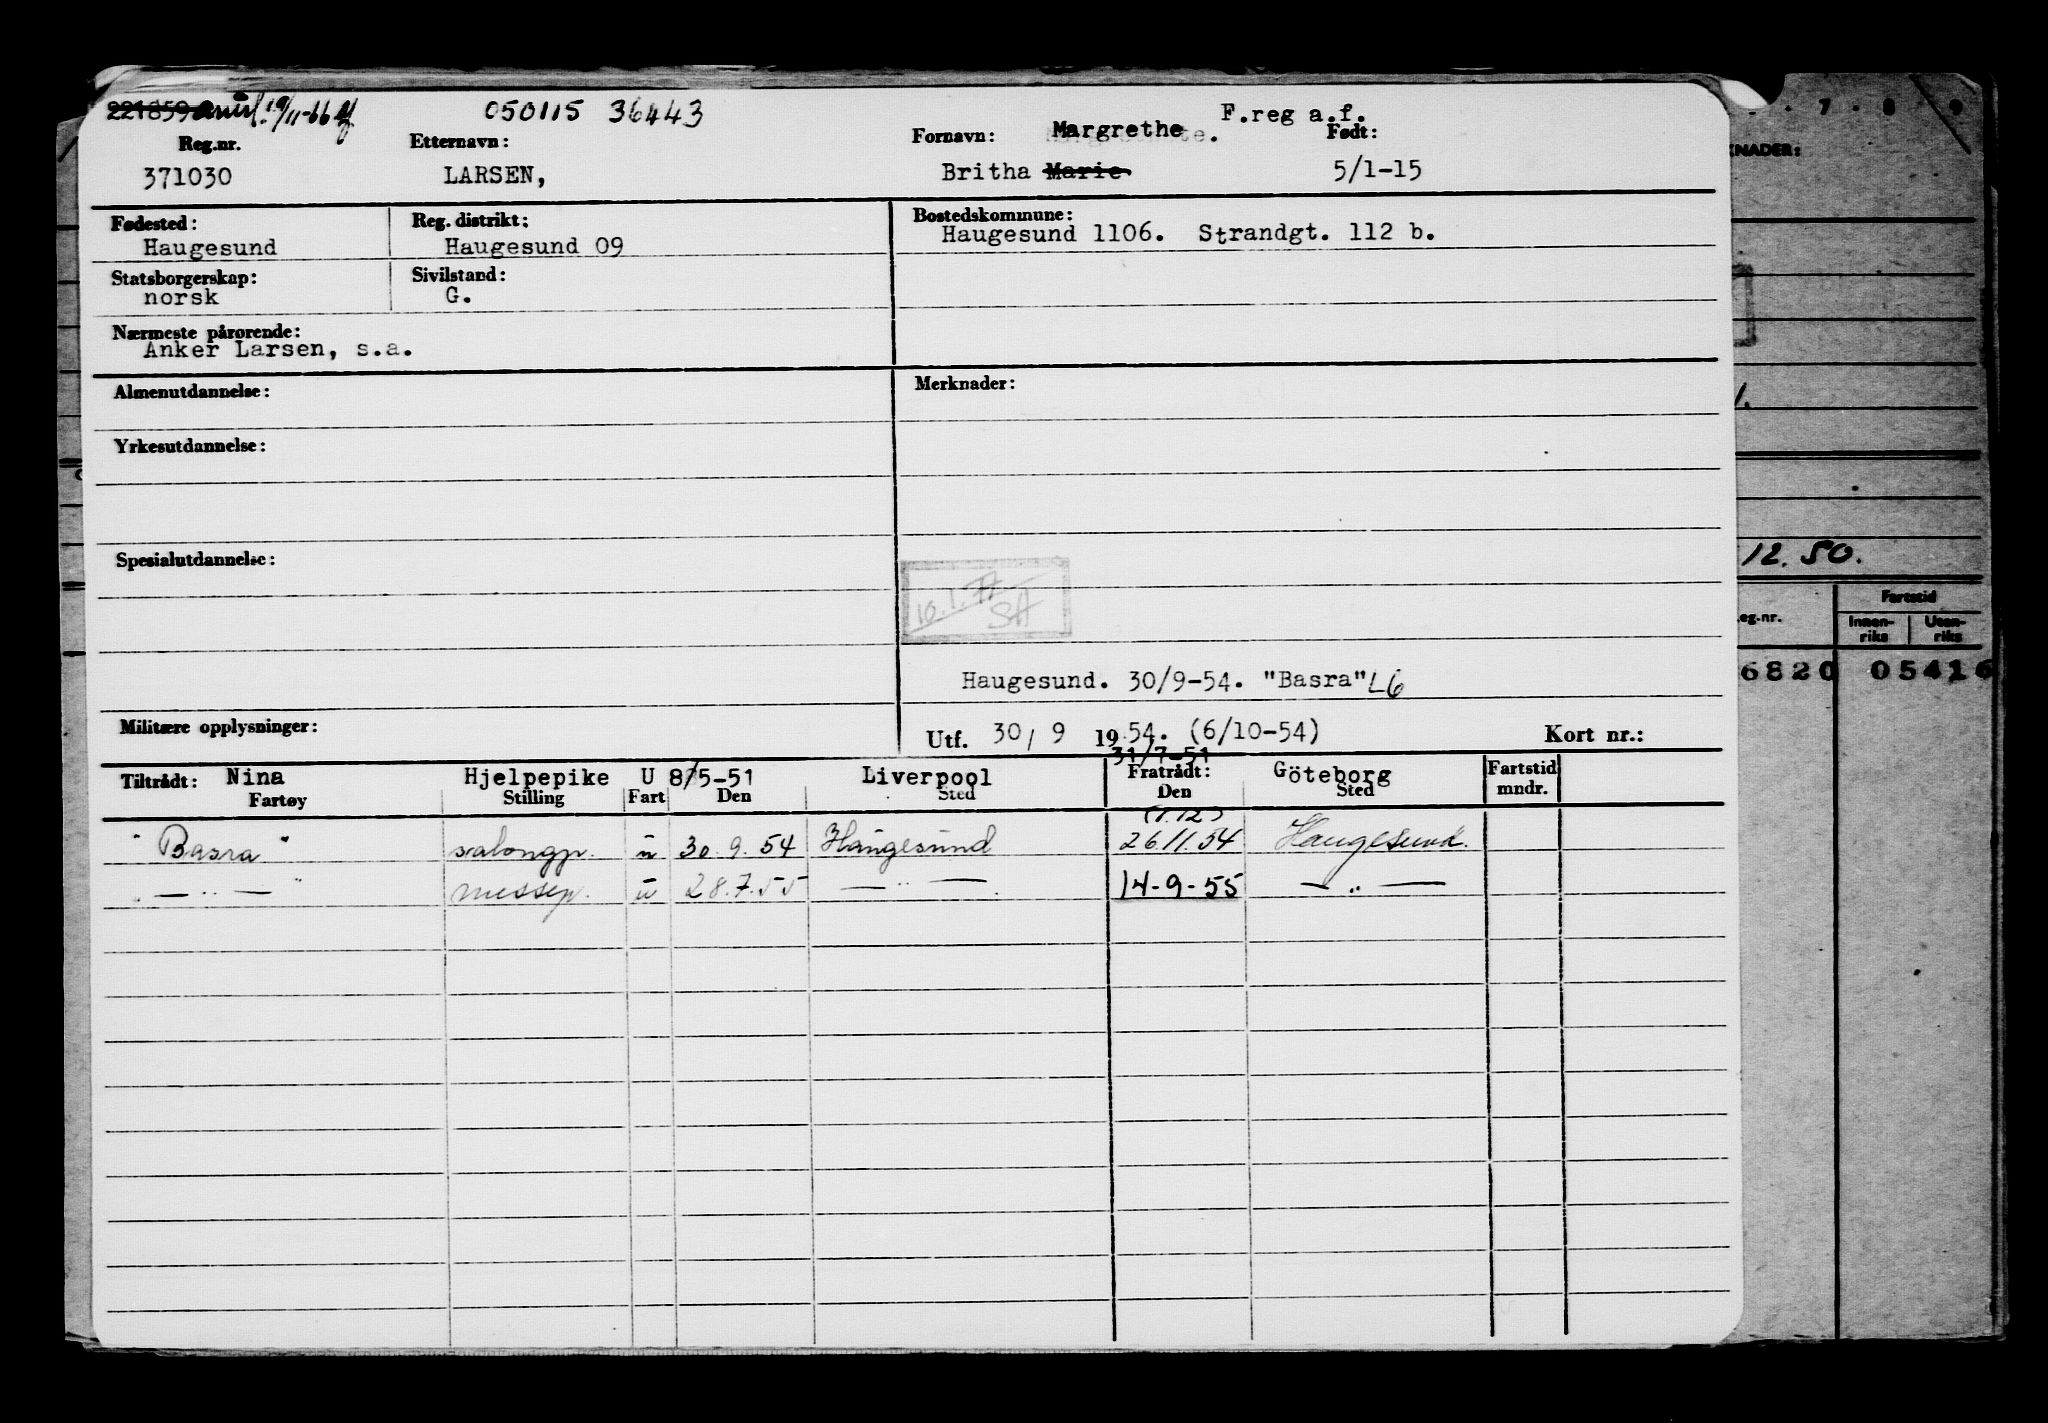 221859 anul. 19/11-66 050115 36443 F.reg a.f.
Reg.nr. Etternavn: Fornavn: Margrethe Født:
371030 LARSEN, Britha Marie 5/1-15
Fødested: Reg. distrikt: Bostedskommune:
Haugesund Haugesund 09 Haugesund 1106. Strandgt. 112 b.
Statsborgerskap: Sivilstand:
norsk G.
Nærmeste pårørende:
Anker Larsen, s.a.
Almenutdannelse: Merknader:
Yrkesutdannelse:
Spesialutdannelse:
10.1.77
SA
Haugesund. 30/9-54. "Basra" L6
Militære opplysninger:
Utf. 30/9 1954. (6/10-54) Kort nr.:
31/7-51
Tiltrådt: Nina Hjelpepike U 8/5-51 Liverpool Fratrådt: Göteborg Fartstid
Fartøy Stilling Fart Den Sted Den Sted mndr.
(1.12)
"Basra" salongp. u 30.9.54 Haugesund 26.11.54 Haugesund.
— " — messep. u 28.7.55 — " — 14-9-55 — " —
7 8 9
KNADER:
12.50.
eg.nr. Fartstid
Innen-
riks Uten-
riks
6820 05416